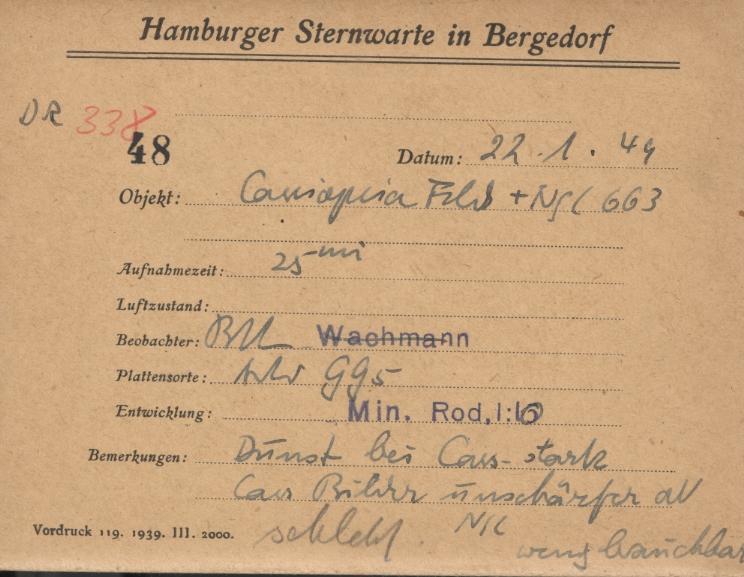 Hamburger Sternwarte in Bergedorf
DR 338
48
Datum: 22.1.49
Objekt: Cassiopeia Feld + NGC 663
Aufnahmezeit: 25 min
Luftzustand:
Beobachter: Wachmann
Plattensorte: GG5
Entwicklung: Min. Rod, 1:10
Bemerkungen: Dunst bei Cass stark
Cass Bilder unschärfer als
NGC
schlecht. wenig brauchbar
Vordruck 119. 1939. III. 2000.